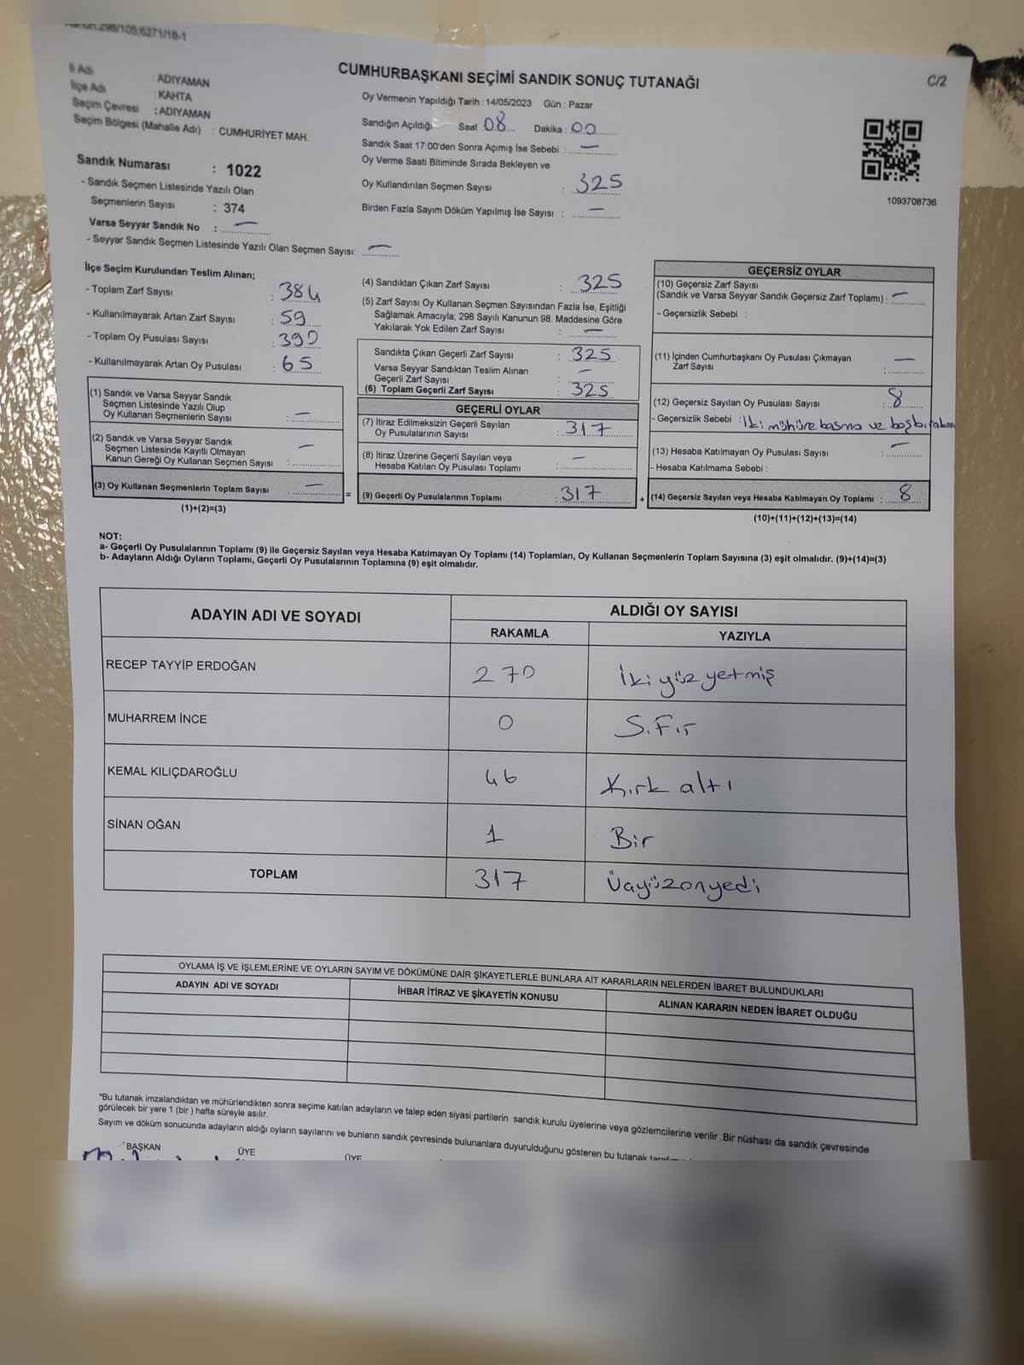 CUMHURBAŞKANI SEÇİMİ SANDIK SONUÇ TUTANAĞI
C/2
İl Adı ADIYAMAN
İlçe Adı KAHTA
Seçim Çevresi : ADIYAMAN
Seçim Bölgesi (Mahalle Adı) : CUMHURİYET MAH.
Oy Vermenin Yapıldığı Tarih : 14/05/2023 Gün : Pazar
Sandığın Açıldığı Saat 08 Dakika : 00
Sandık Saat 17:00'den Sonra Açımış İse Sebebi : —
Oy Verme Saati Bitiminde Sırada Bekleyen ve
Oy Kullandırılan Seçmen Sayısı : 325
Birden Fazla Sayım Döküm Yapılmış İse Sayısı : —
1093708736
Sandık Numarası : 1022
- Sandık Seçmen Listesinde Yazılı Olan
Seçmenlerin Sayısı : 374
Varsa Seyyar Sandık No : —
- Seyyar Sandık Seçmen Listesinde Yazılı Olan Seçmen Sayısı: —
İlçe Seçim Kurulundan Teslim Alınan;
- Toplam Zarf Sayısı : 384
- Kullanılmayarak Artan Zarf Sayısı : 59
- Toplam Oy Pusulası Sayısı : 390
- Kullanılmayarak Artan Oy Pusulası : 65
(1) Sandık ve Varsa Seyyar Sandık
Seçmen Listesinde Yazılı Olup
Oy Kullanan Seçmenlerin Sayısı : —
(2) Sandık ve Varsa Seyyar Sandık
Seçmen Listesinde Kayıtlı Olmayan
Kanun Gereği Oy Kullanan Seçmen Sayısı : —
(3) Oy Kullanan Seçmenlerin Toplam Sayısı : — =
(1)+(2)=(3)
(4) Sandıktan Çıkan Zarf Sayısı : 325
(5) Zarf Sayısı Oy Kullanan Seçmen Sayısından Fazla İse, Eşitliği
Sağlamak Amacıyla, 298 Sayılı Kanunun 98. Maddesine Göre
Yakılarak Yok Edilen Zarf Sayısı : —
Sandıkta Çıkan Geçerli Zarf Sayısı : 325
Varsa Seyyar Sandıktan Teslim Alınan
Geçerli Zarf Sayısı : —
(6) Toplam Geçerli Zarf Sayısı : 325
GEÇERLİ OYLAR
(7) İtiraz Edilmeksizin Geçerli Sayılan
Oy Pusulalarının Sayısı : 317
(8) İtiraz Üzerine Geçerli Sayılan veya
Hesaba Katılan Oy Pusulası Toplamı : —
(9) Geçerli Oy Pusulalarının Toplamı : 317 +
GEÇERSİZ OYLAR
(10) Geçersiz Zarf Sayısı
(Sandık ve Varsa Seyyar Sandık Geçersiz Zarf Toplamı) : —
- Geçersizlik Sebebi :
(11) İçinden Cumhurbaşkanı Oy Pusulası Çıkmayan
Zarf Sayısı : —
(12) Geçersiz Sayılan Oy Pusulası Sayısı : 8
- Geçersizlik Sebebi : İki mühüre basma ve boşbırakma
(13) Hesaba Katılmayan Oy Pusulası Sayısı : —
- Hesaba Katılmama Sebebi :
(14) Geçersiz Sayılan veya Hesaba Katılmayan Oy Toplamı : 8
(10)+(11)+(12)+(13)=(14)
NOT:
a- Geçerli Oy Pusulalarının Toplamı (9) ile Geçersiz Sayılan veya Hesaba Katılmayan Oy Toplamı (14) Toplamları, Oy Kullanan Seçmenlerin Toplam Sayısına (3) eşit olmalıdır. (9)+(14)=(3)
b- Adayların Aldığı Oyların Toplamı, Geçerli Oy Pusulalarının Toplamına (9) eşit olmalıdır.
ADAYIN ADI VE SOYADI ALDIĞI OY SAYISI
RAKAMLA YAZIYLA
RECEP TAYYİP ERDOĞAN 270 İki yüz yetmiş
MUHARREM İNCE 0 Sıfır
KEMAL KILIÇDAROĞLU 46 Kırk altı
SİNAN OĞAN 1 Bir
TOPLAM 317 Üçyüzonyedi
OYLAMA İŞ VE İŞLEMLERİNE VE OYLARIN SAYIM VE DÖKÜMÜNE DAİR ŞİKAYETLERLE BUNLARA AİT KARARLARIN NELERDEN İBARET BULUNDUKLARI
ADAYIN ADI VE SOYADI İHBAR İTİRAZ VE ŞİKAYETİN KONUSU ALINAN KARARIN NEDEN İBARET OLDUĞU
*Bu tutanak imzalandıktan ve mühürlendikten sonra seçime katılan adayların ve talep eden siyasi partilerin sandık kurulu üyelerine veya gözlemcilerine verilir .Bir nüshası da sandık çevresinde
görülecek bir yere 1 (bir ) hafta süreyle asılır.
Sayım ve döküm sonucunda adayların aldığı oyların sayılarını ve bunların sandık çevresinde bulunanlara duyurulduğunu gösteren bu tutanak
BAŞKAN ÜYE ÜYE